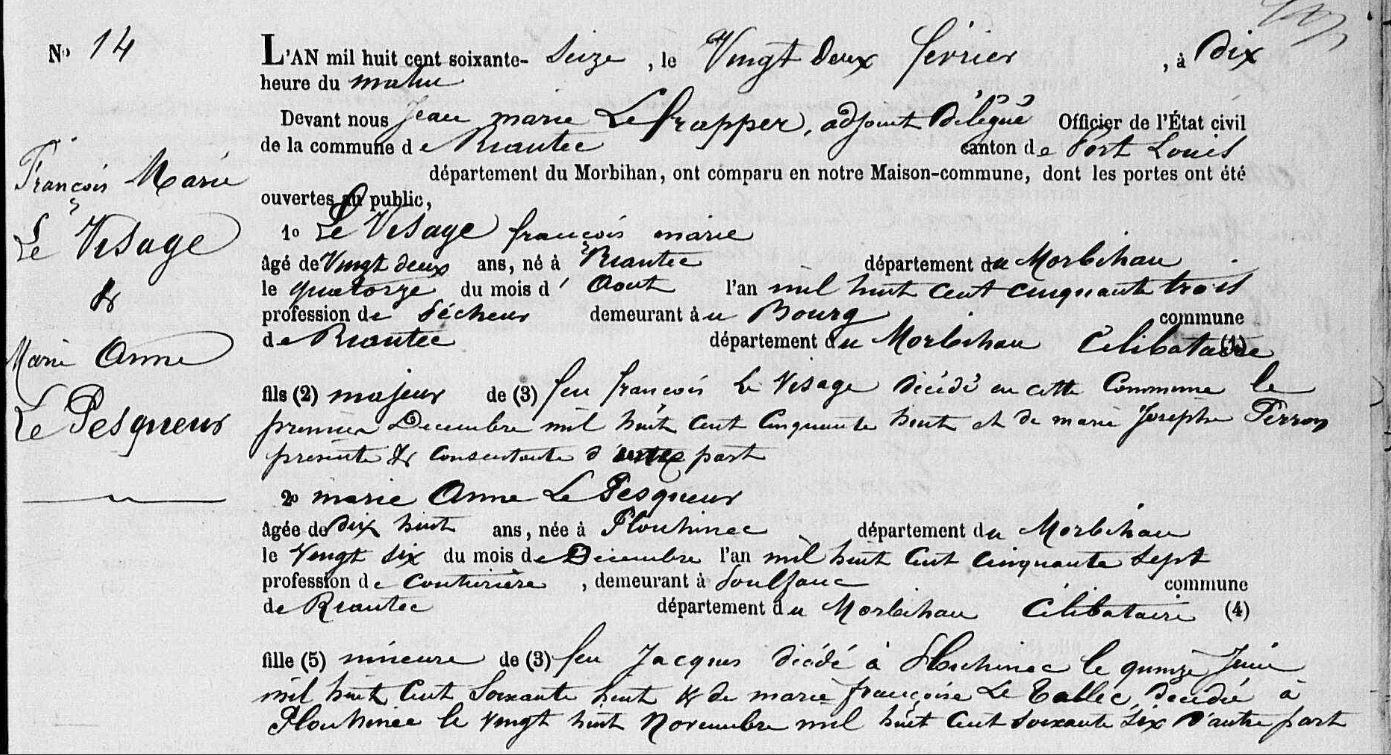 N° 14
L'AN mil huit cent soixante- Seize, le Vingt deux fevrier, à Dix
heure du matin
Devant nous Jean marie Le frapper, adjoint Délégué Officier de l'État civil
de la commune de Riantec canton de Port Louis
département du Morbihan, ont comparu en notre Maison-commune, dont les portes ont été
ouvertes au public,
François Marie
Le Visage
&
Marie Anne
Le Pesqueur
1° Le Visage françois marie
âgé de Vingt deux ans, né à Riantec département du Morbihan
le quatorze du mois d' Aout l'an mil huit cent cinquante trois
profession de Pécheur demeurant au Bourg commune
de Riantec département du Morbihan Célibataire (1)
fils (2) majeur de (3) feu françois Le Visage décédé en cette Commune le
premier Decembre mil huit cent cinquante huit et de marie Josephe Perron
présente & consentante d'une part
2° marie Anne Le Pesqueur
âgée de Dix huit ans, née à Plouhinec département du Morbihan
le Vingt six du mois de Décembre l'an mil huit cent cinquante sept
profession de couturiere, demeurant à commune
de Riantec département du Morbihan Célibataire (4)
fille (5) mineure de (3) feu Jacques décédé à Plouhinec le quinze Juin
mil huit cent soixante huit & de marie françoise Le Tallec, décédée à
Plouhinec le vingt huit Novembre mil huit cent soixante six d'autre part